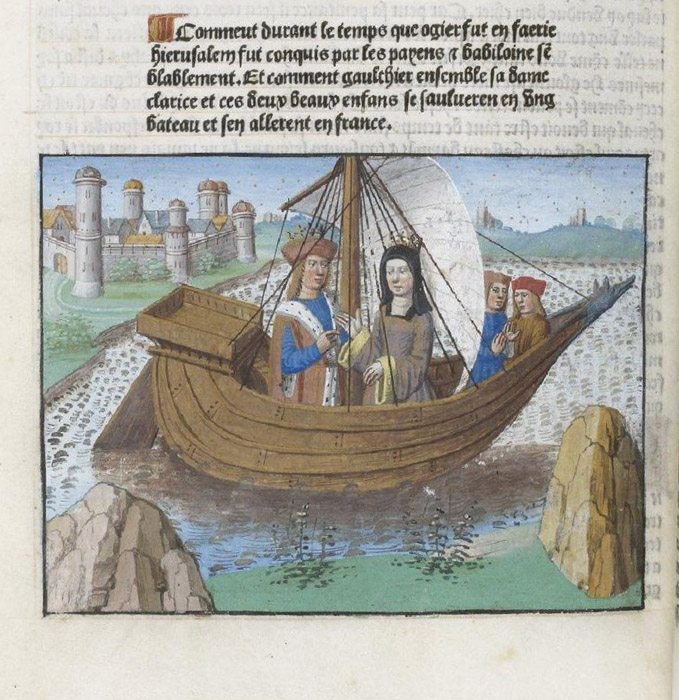 Comment durant le temps que ogier fut en faerie
hierusalem fut conquis par les payens ⁊ babiloine sē
blablement. Et comment gaulthier ensemble sa dame
clarice et ces deux beaux enfans se sauluerent en vng
bateau et sen allerent en france.